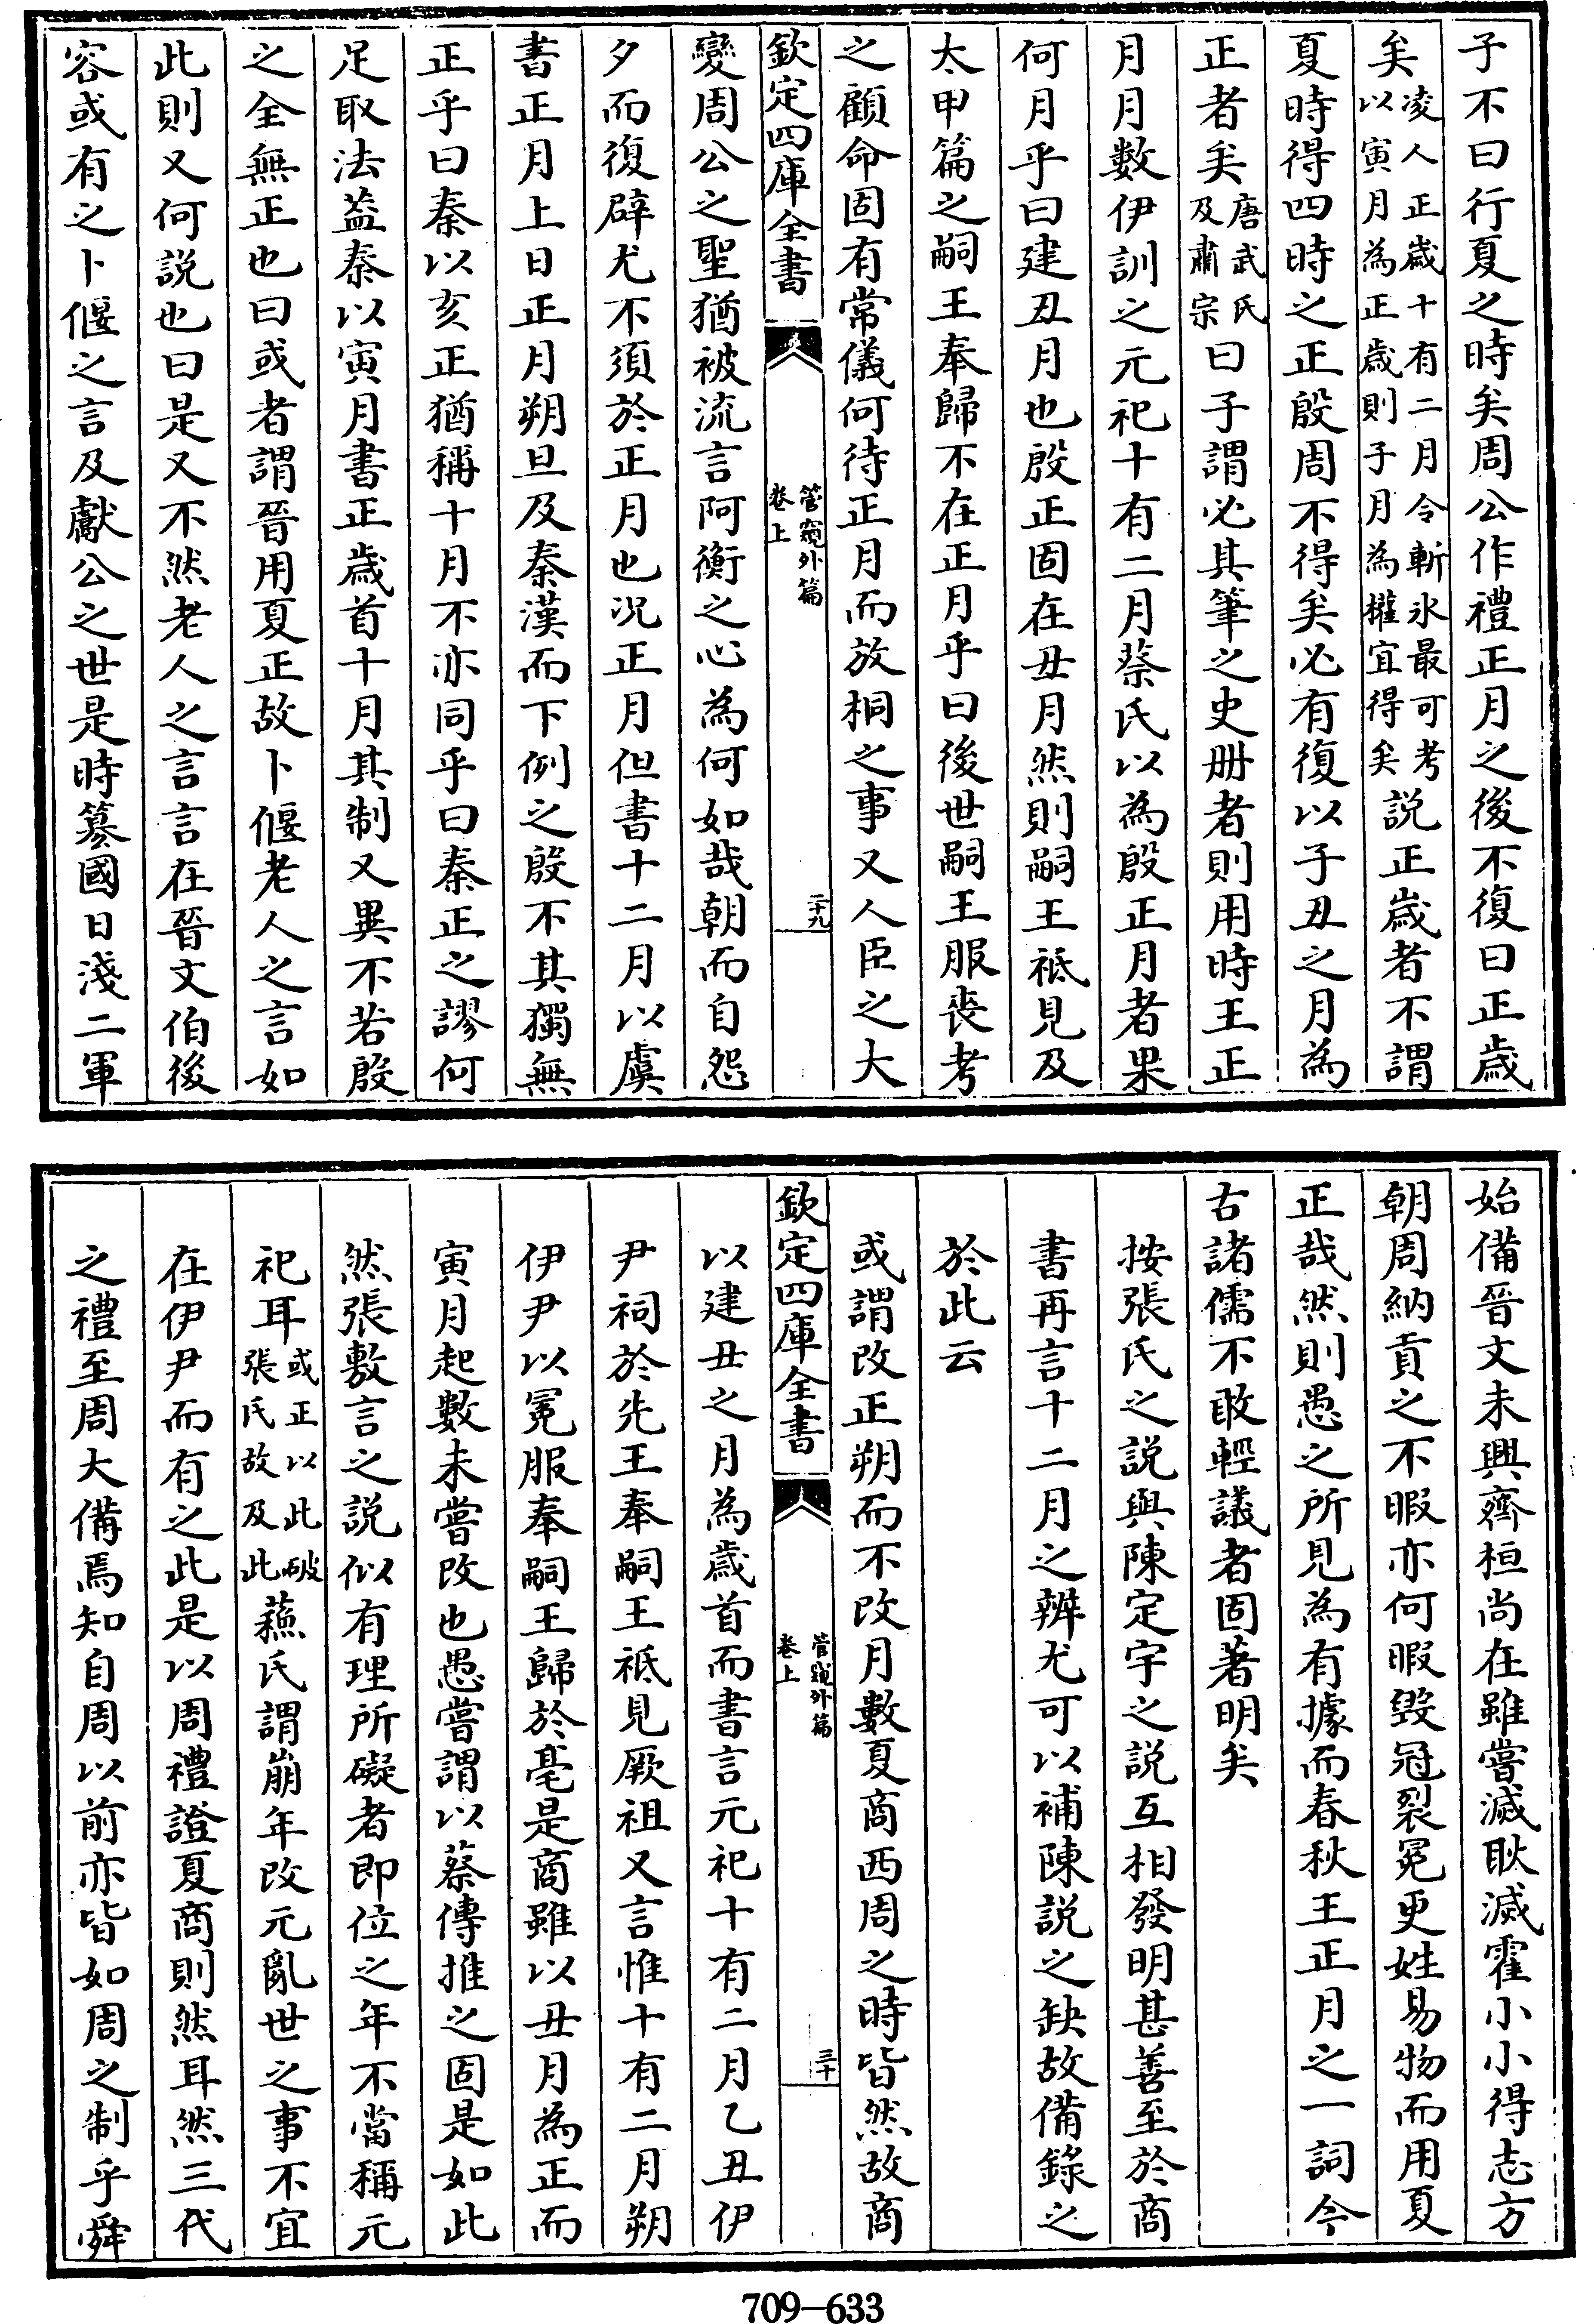 子不曰行夏之時矣周公作禮正月之後不復曰正歲
矣凌人正歲十有二月令斬氷最可考以寅月為正歲則子月為權宜得矣説正歲者不謂
夏時得四時之正殷周不得矣必有復以子丑之月為
正者矣唐武氏及肅宗曰子謂必其筆之史册者則用時王正
月月數伊訓之元祀十有二月蔡氏以為殷正月者果
何月乎曰建丑月也殷正固在丑月然則嗣王祗見及
太甲篇之嗣王奉歸不在正月乎曰後世嗣王服喪考
之顧命固有常儀何待正月而放桐之事又人臣之大
欽定四庫全書
管窺外篇
卷上
二十九
變周公之聖猶被流言阿衡之心為何如哉朝而自怨
夕而復辟尤不須於正月也况正月但書十二月以虞
書正月上日正月朔旦及秦漢而下例之殷不其獨無
正乎曰秦以亥正猶稱十月不亦同乎曰秦正之謬何
足取法葢秦以寅月書正歲首十月其制又異不若殷
之全無正也曰或者謂晉用夏正故卜偃老人之言如
此則又何説也曰是又不然老人之言言在晉文伯後
容或有之卜偃之言及獻公之世是時簒國日淺二軍
始備晉文未興齊桓尚在雖嘗滅耿滅霍小小得志方
朝周納貢之不暇亦何暇毁冠裂冕更姓易物而用夏
正哉然則愚之所見為有據而春秋王正月之一詞今
古諸儒不敢輕議者固著明矣
按張氏之説與陳定宇之説互相發明甚善至於商
書再言十二月之辨尤可以補陳説之缺故備錄之
於此云
或謂改正朔而不改月數夏商西周之時皆然故商
欽定四庫全書
管窺外篇
卷上
三十
以建丑之月為歲首而書言元祀十有二月乙丑伊
尹祠於先王奉嗣王祗見厥祖又言惟十有二月朔
伊尹以冕服奉嗣王歸於亳是商雖以丑月為正而
寅月起數未嘗改也愚嘗謂以蔡傳推之固是如此
然張敷言之説似有理所礙者即位之年不當稱元
祀耳或正以此破張氏故及此蘓氏謂崩年改元亂世之事不宜
在伊尹而有之此是以周禮證夏商則然耳然三代
之禮至周大備焉知自周以前亦皆如周之制乎舜
709-633